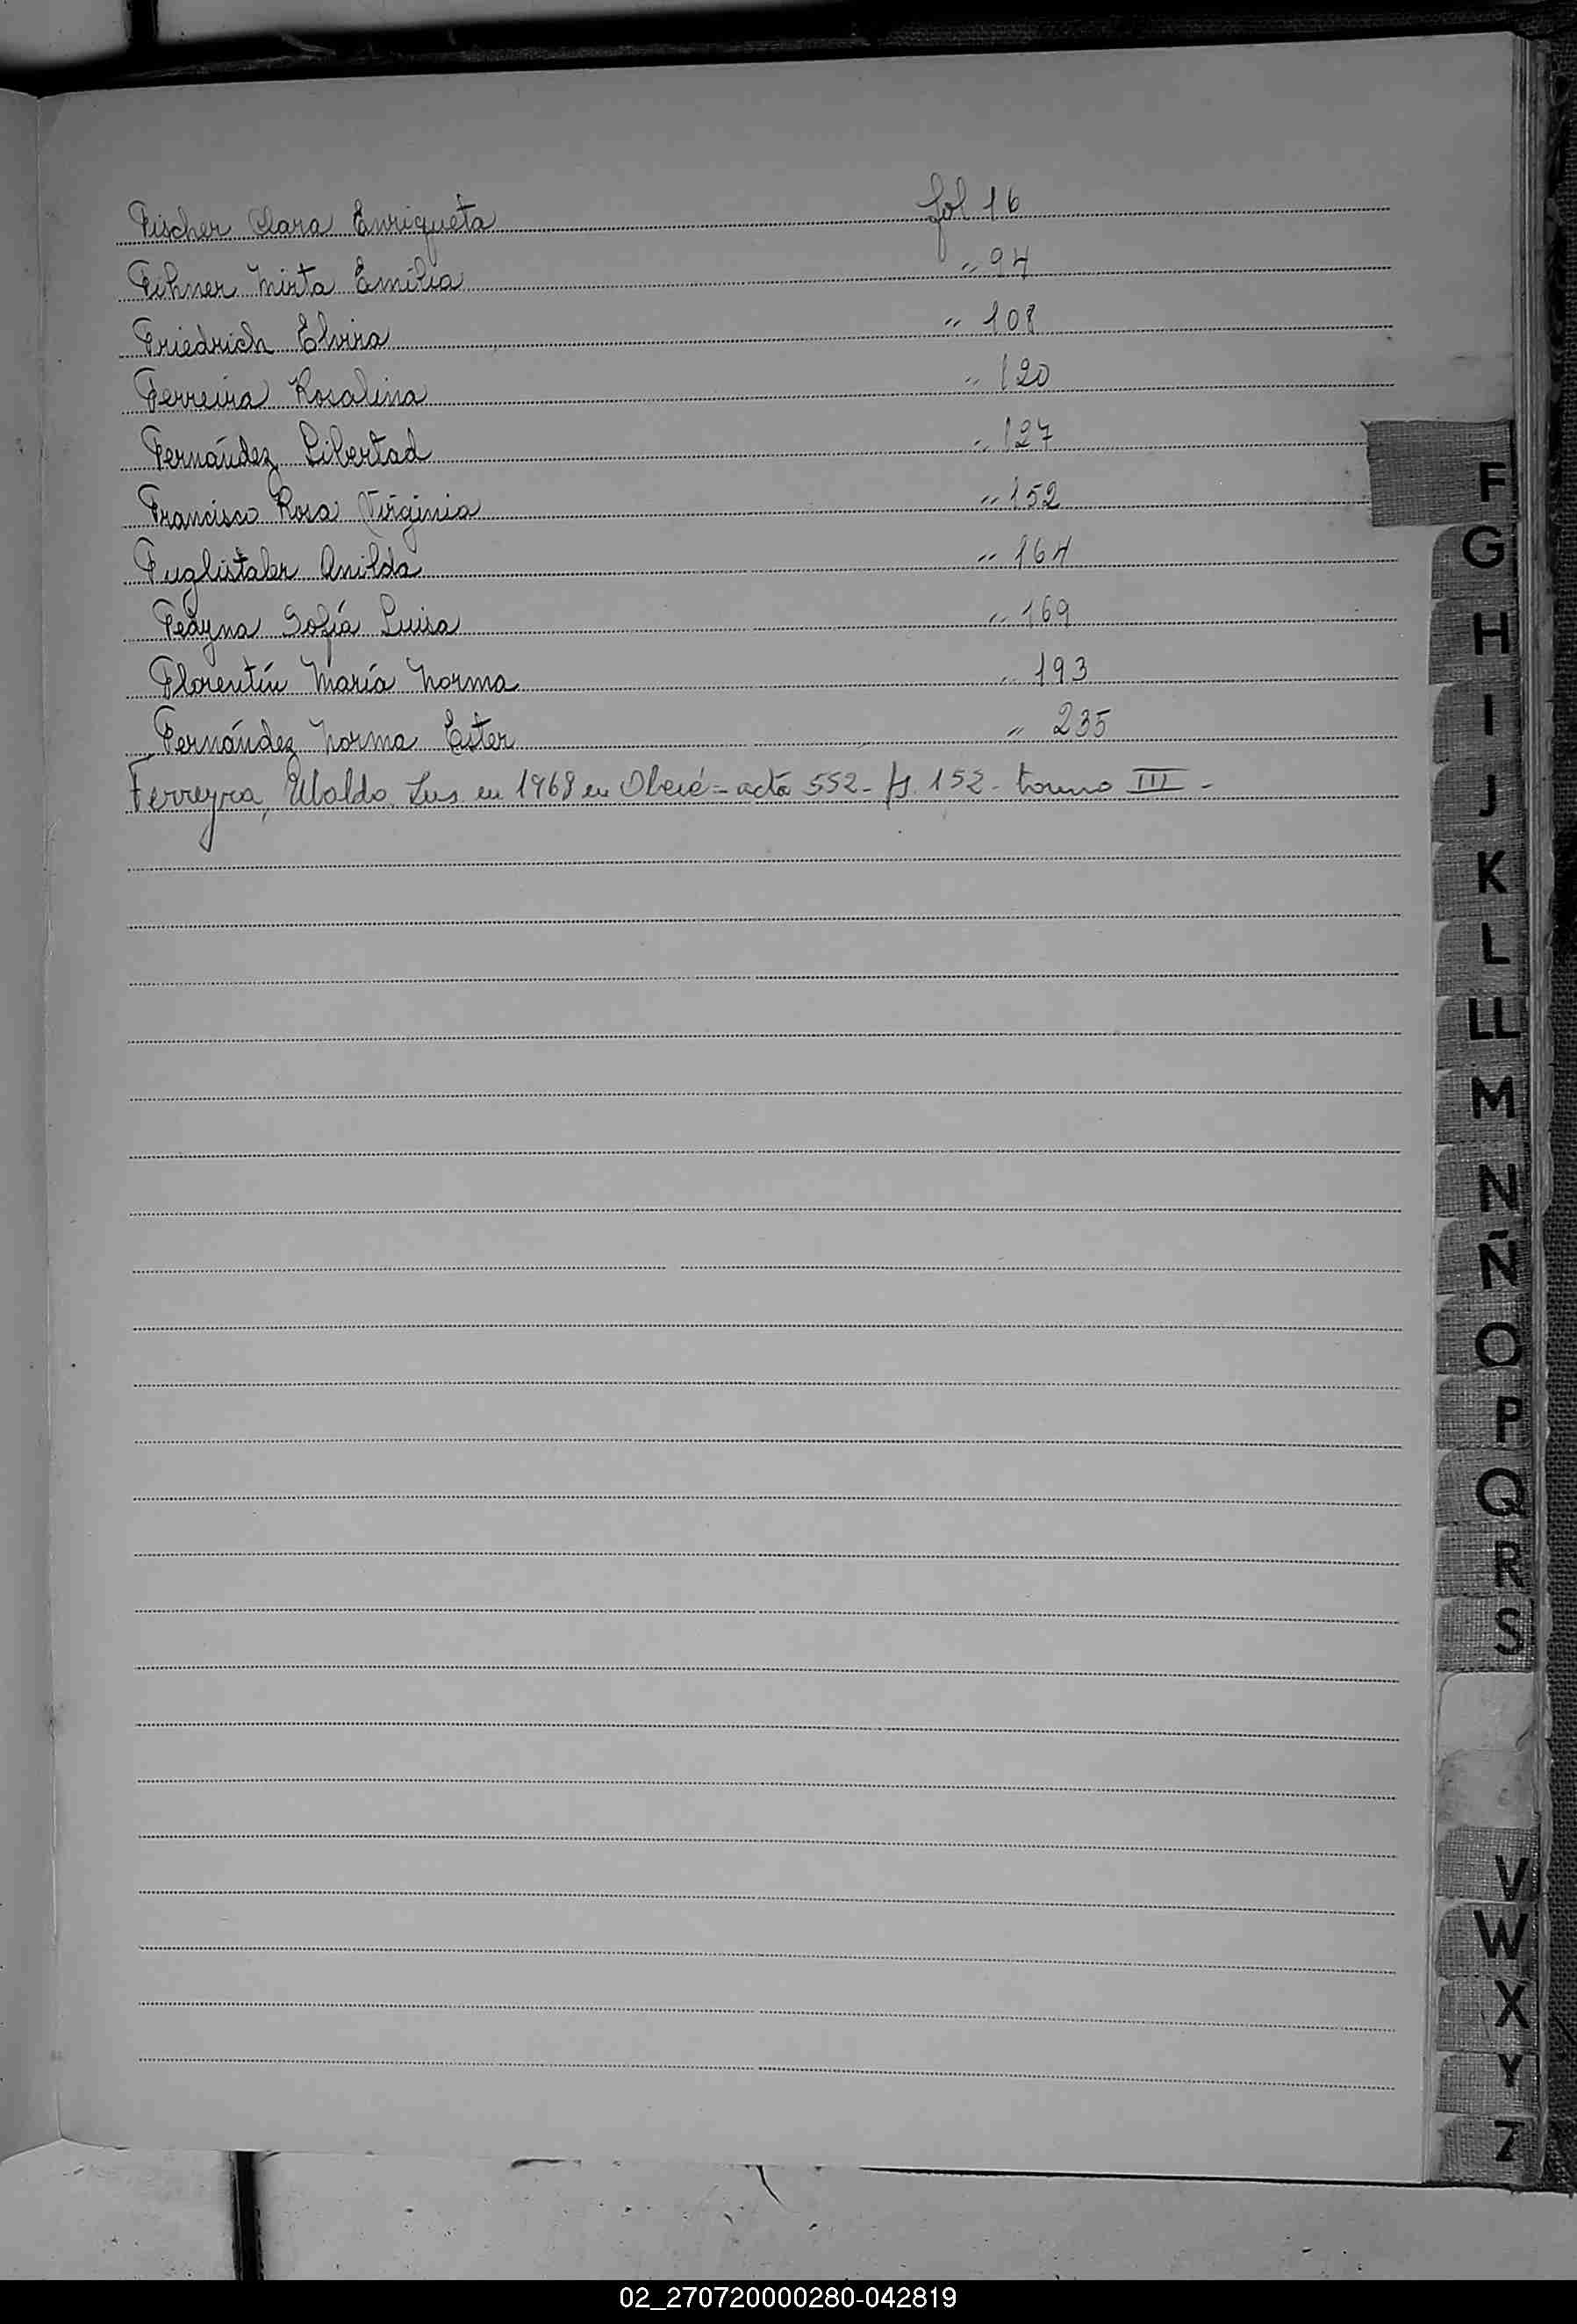 Fischer Clara Enriqueta fol 16
Fihner Mirta Emilia " 94
Friedrich Elvira " 108
Ferreira Rosalina " 120
Fernández Libertad " 127
Francisco Rosa Virginia " 152
Fuglistaler Anilda " 164
Feayna Sofía Luisa " 169
Florentín María Norma " 193
Fernández Norma Ester " 235
Ferreyra, Ubaldo Ins en 1968 en Oberá - acta 552 - fs. 152 - tomo III -
F
G
H
I
J
K
L
LL
M
N
Ñ
O
P
Q
R
S
V
W
X
Y
Z
02_270720000280-042819